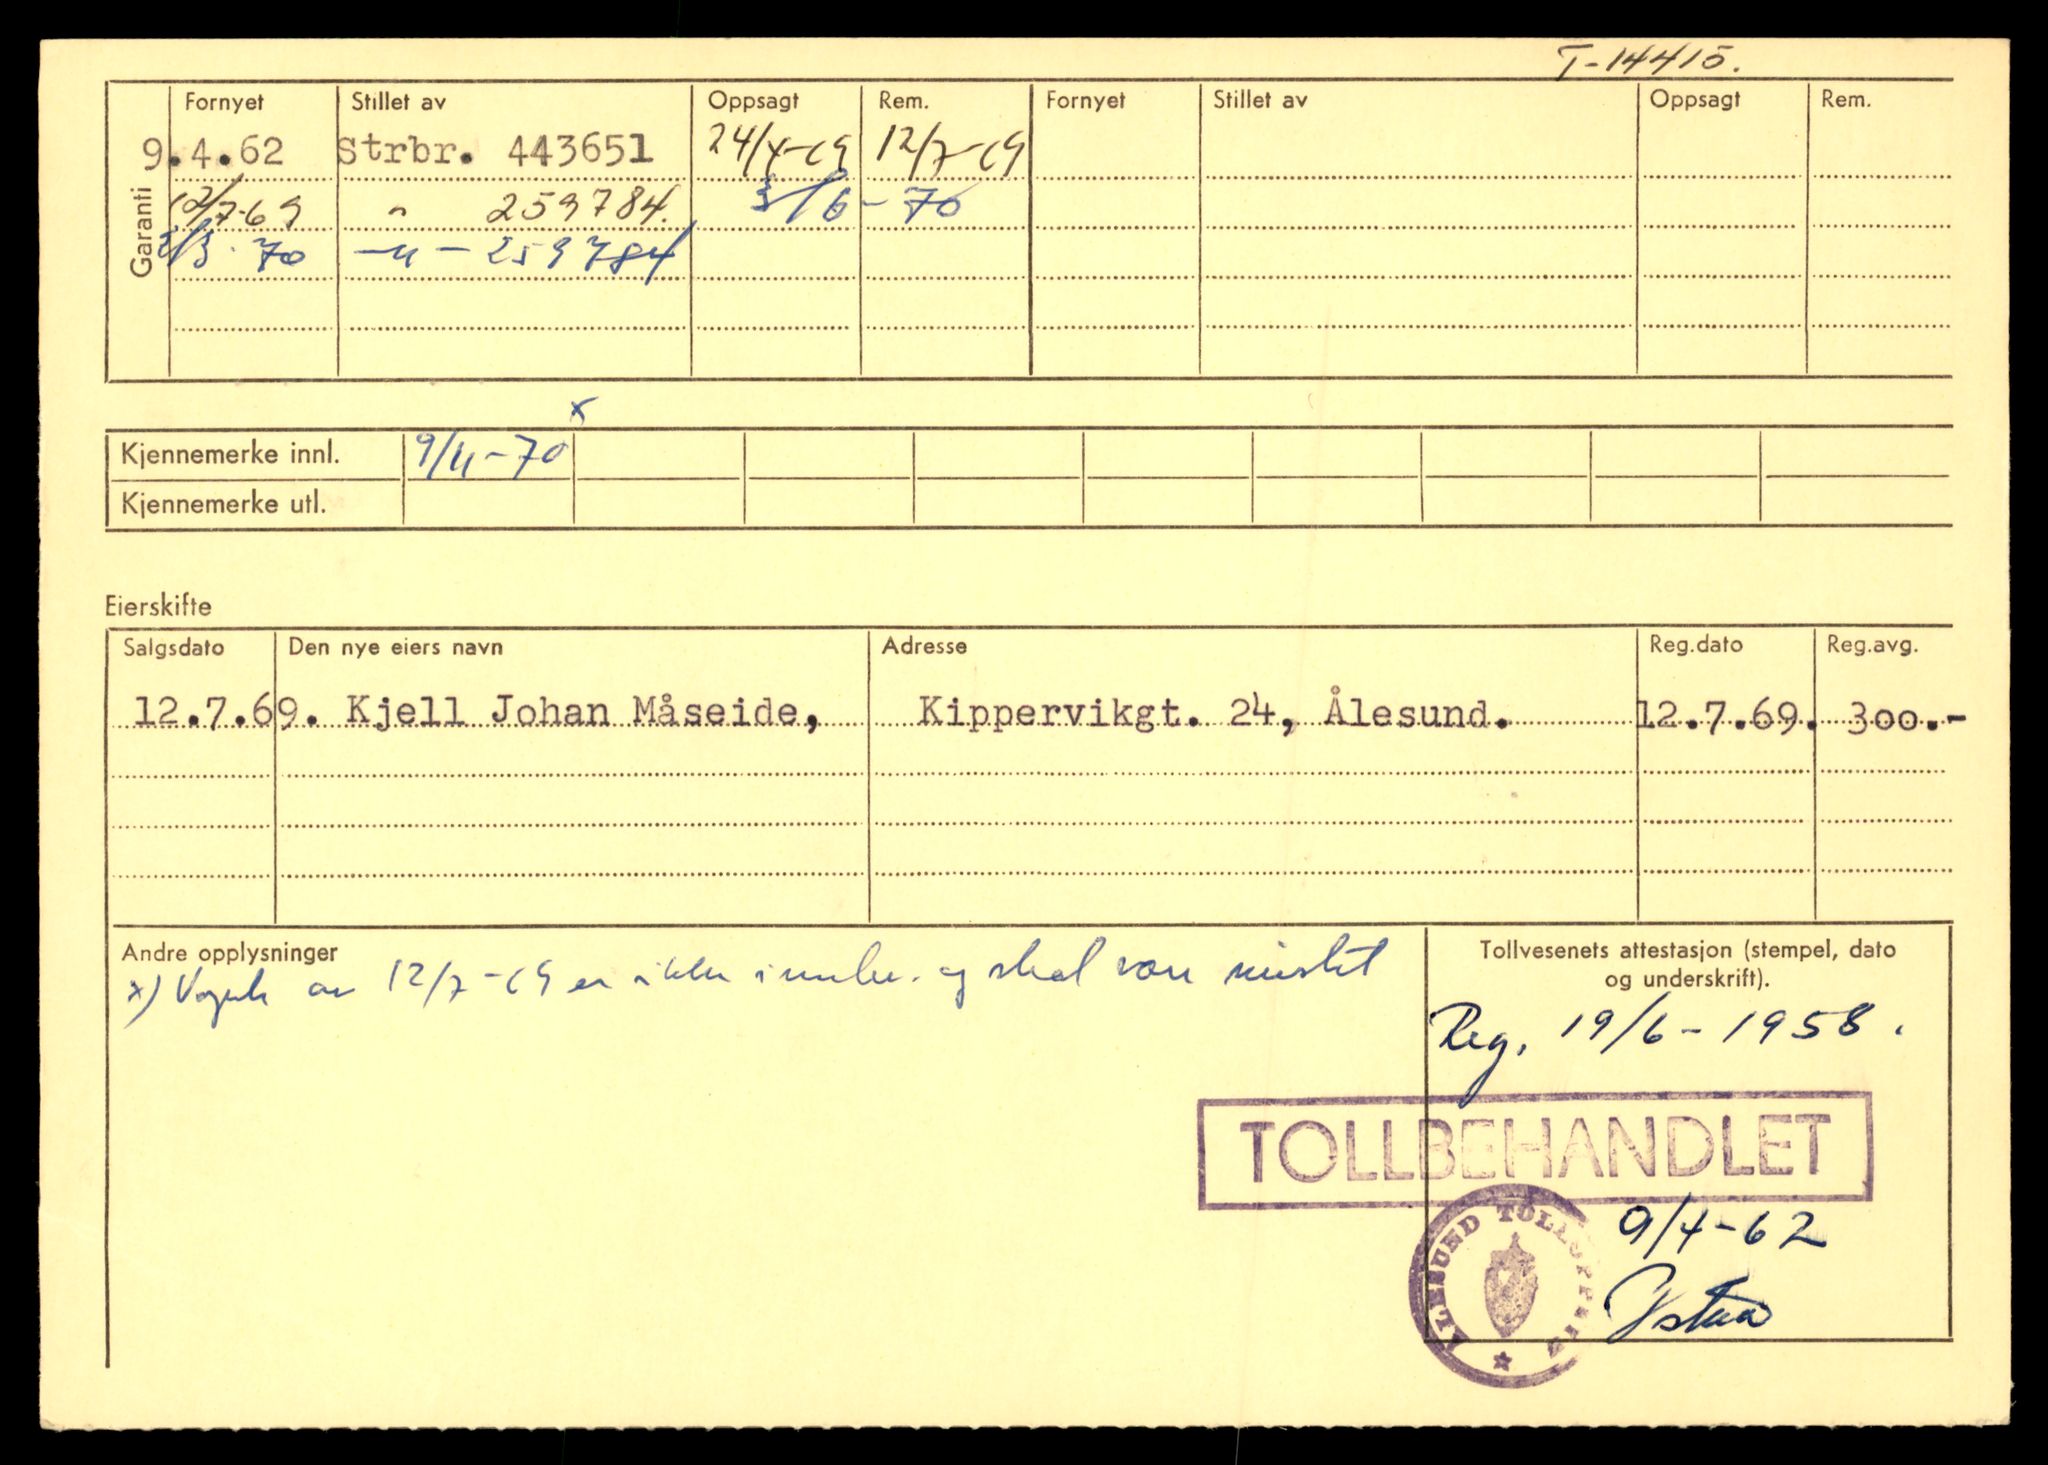 T-14415.
Garanti
Fornyet Stillet av Oppsagt Rem. Fornyet Stillet av Oppsagt Rem.
9.4.62 Strbr. 443651 24/4-69 12/7-69
12/7-69 " 259784. 3/6-70
3/3-70 -"- 259784
x
Kjennemerke innl. 9/11-70
Kjennemerke utl.
Eierskifte
Salgsdato Den nye eiers navn Adresse Reg.dato Reg.avg.
12.7.69. Kjell Johan Måseide, Kippervikgt. 24, Ålesund. 12.7.69. 300.-
Andre opplysninger
x) Vognk av 12/7-69 er ikke og skal være mistet
Tollvesenets attestasjon (stempel, dato
og underskrift).
Reg. 19/6-1958.
TOLLBEHANDLET
ÅLESUND TOLLOPPSYN
9/4-62